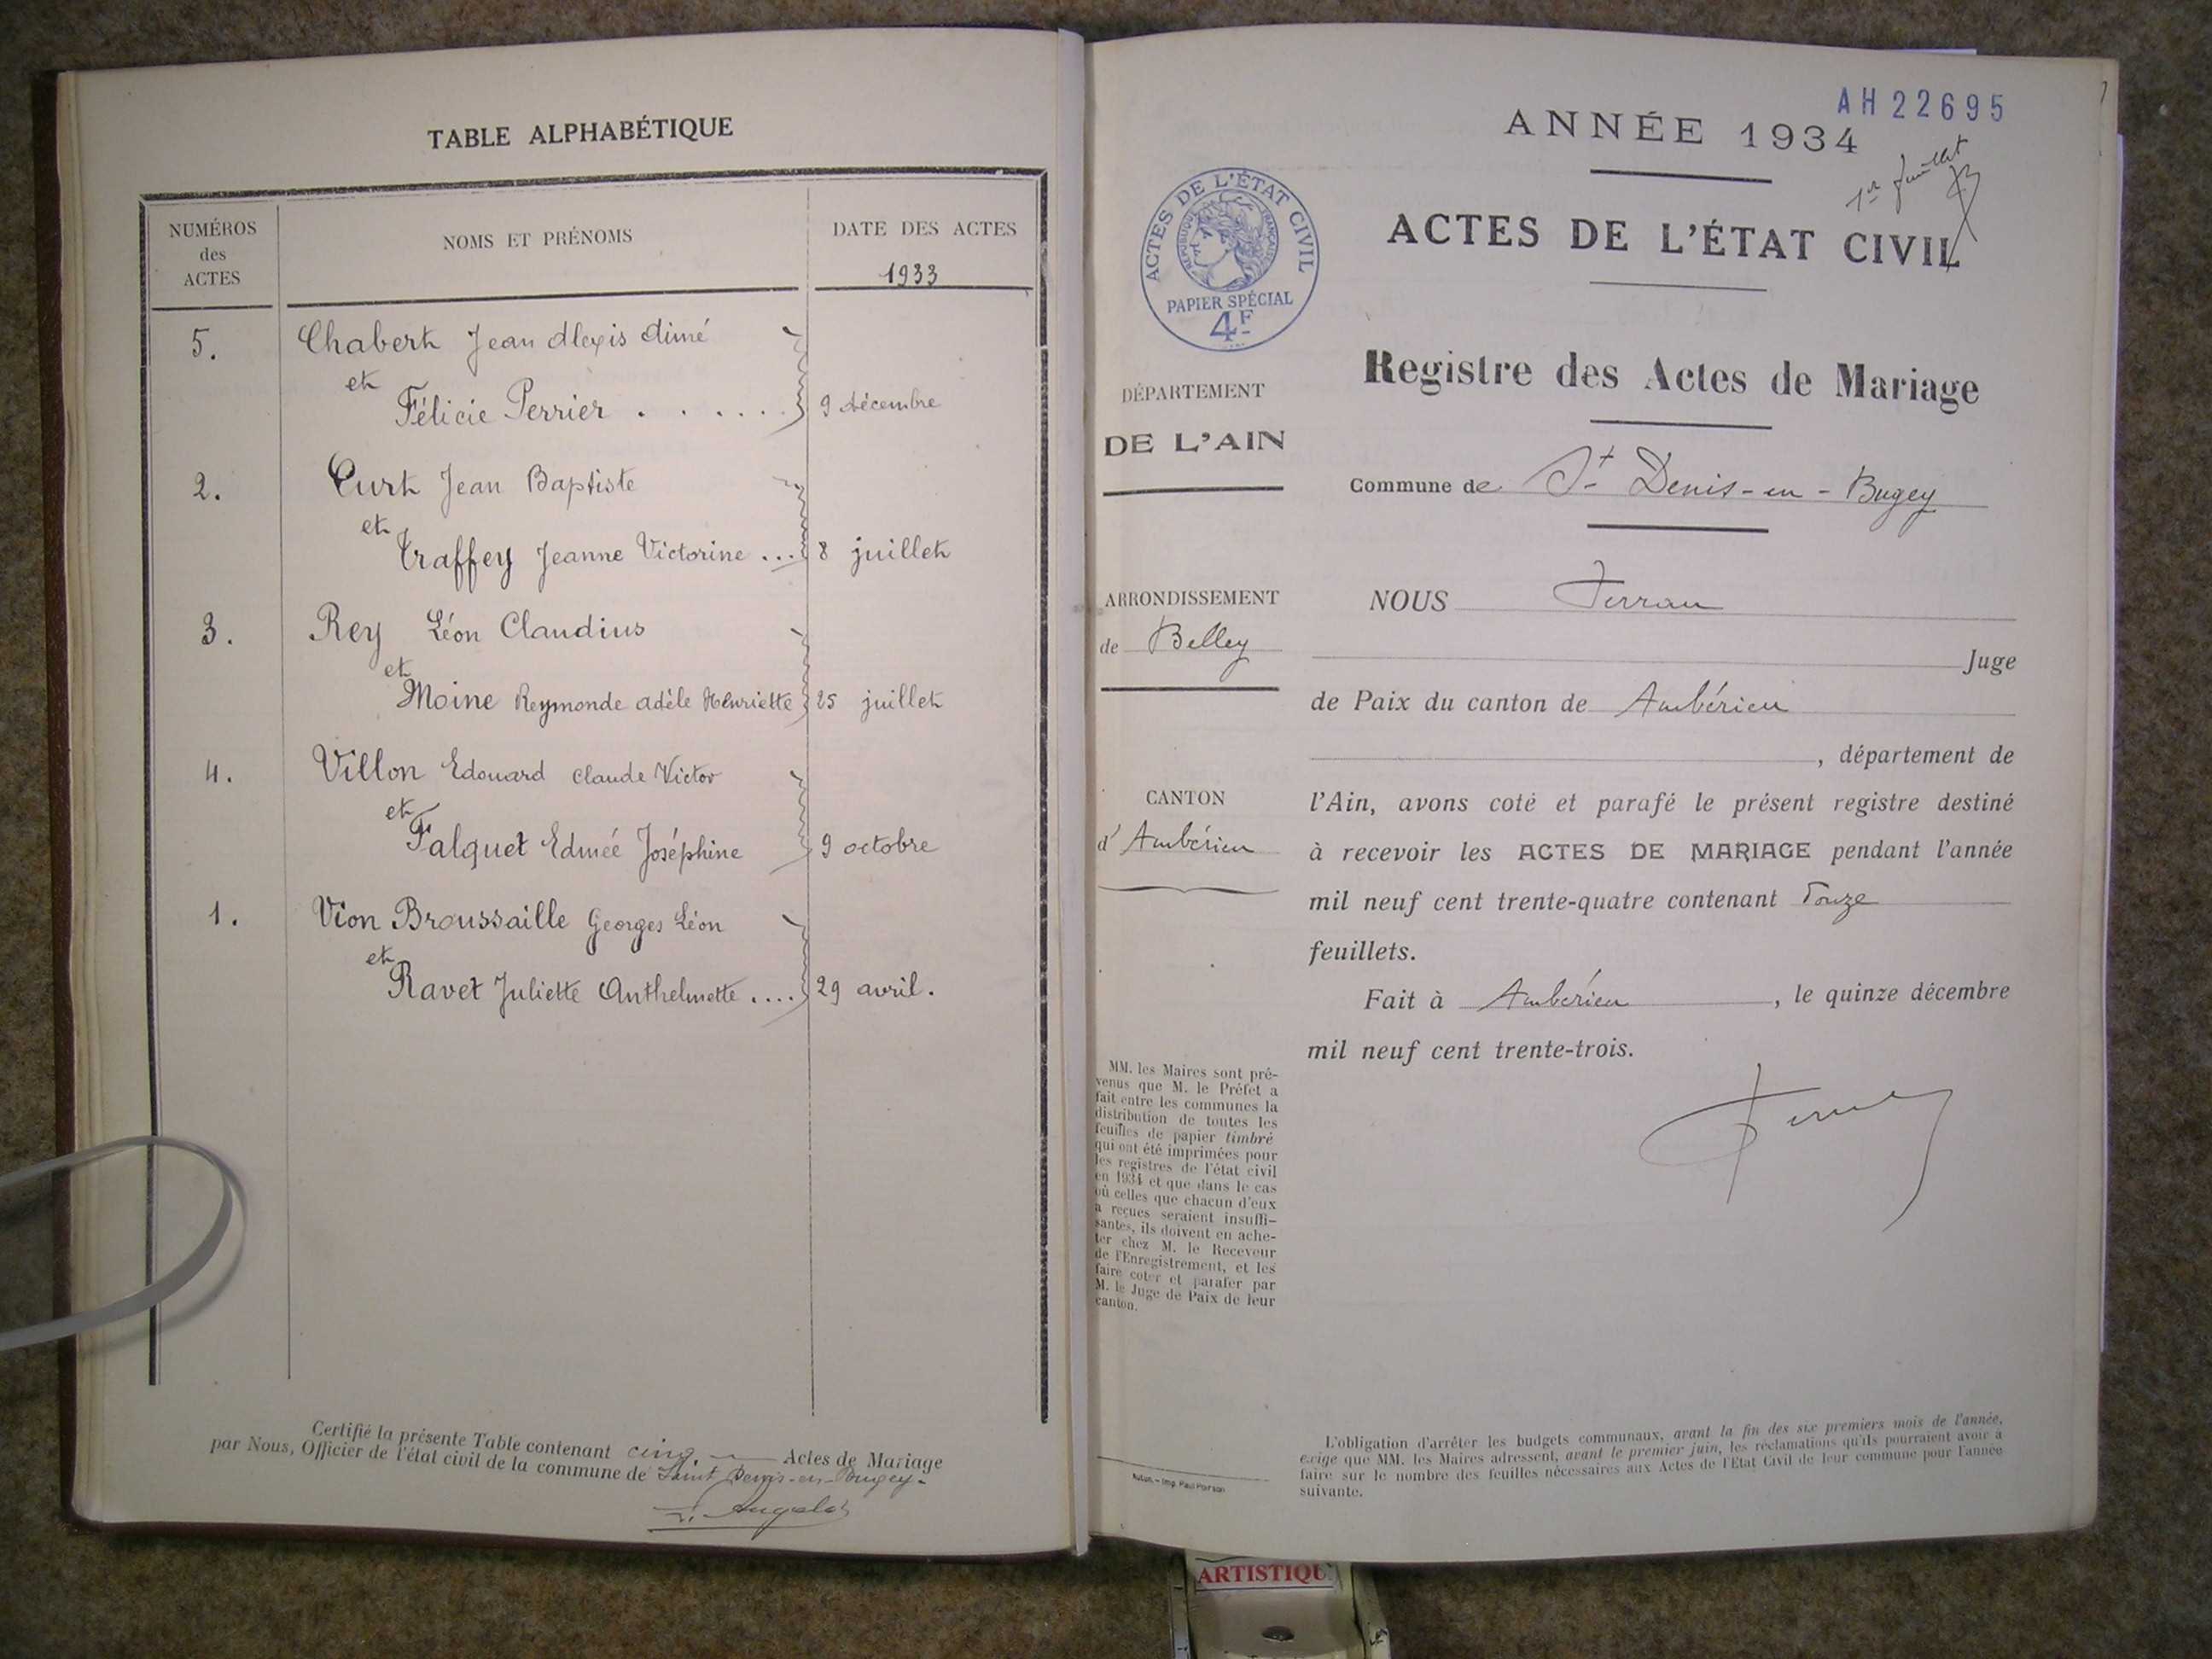 TABLE ALPHABÉTIQUE
NUMÉROS
des
ACTES
NOMS ET PRÉNOMS
DATE DES ACTES
1933
5. Chabert Jean Alexis Aimé
et
Félicie Perrier . . . . . . 9 décembre
2. Curt Jean Baptiste
et
Traffey Jeanne Victorine ... 8 juillet
3. Rey Léon Claudius
et
Moine Reymonde Adèle Henriette 25 juillet
4. Villon Edouard Claude Victor
et
Falquet Edmée Joséphine 9 octobre
1. Vion Broussaille Georges Léon
et
Ravet Juliette Anthelmette .... 29 avril.
Certifié la présente Table contenant cinq Actes de Mariage
par Nous, Officier de l'état civil de la commune de Saint Denis-en-Bugey-
AH22695
ANNÉE 1934
1er feuillet
ACTES DE L'ÉTAT CIVIL
RÉPUBLIQUE FRANÇAISE
PAPIER SPÉCIAL
4F
ACTES DE L'ÉTAT CIVIL
Registre des Actes de Mariage
Commune de St Denis-en-Bugey
DÉPARTEMENT
DE L'AIN
ARRONDISSEMENT
de Belley
CANTON
d' Ambérieu
MM. les Maires sont pré-
venus que M. le Préfet a
fait entre les communes la
distribution de toutes les
feuilles de papier timbré
qui ont été imprimées pour
les registres de l'état civil
en 1934 et que dans le cas
où celles que chacun d'eux
a reçues seraient insuffi-
santes, ils doivent en ache-
ter chez M. le Receveur
de l'Enregistrement, et les
faire coter et parafer par
M. le Juge de Paix de leur
canton.
NOUS
Juge
de Paix du canton de Ambérieu
, département de
l'Ain, avons coté et parafé le présent registre destiné
à recevoir les ACTES DE MARIAGE pendant l'année
mil neuf cent trente-quatre contenant Douze
feuillets.
Fait à Ambérieu , le quinze décembre
mil neuf cent trente-trois.
L'obligation d'arrêter les budgets communaux, avant la fin des six premiers mois de l'année,
exige que MM. les Maires adressent, avant le premier juin, les réclamations qu'ils pourraient avoir à
faire sur le nombre des feuilles nécessaires aux Actes de l'État Civil de leur commune pour l'année
suivante.
Imp. Paul
ARTISTIQU